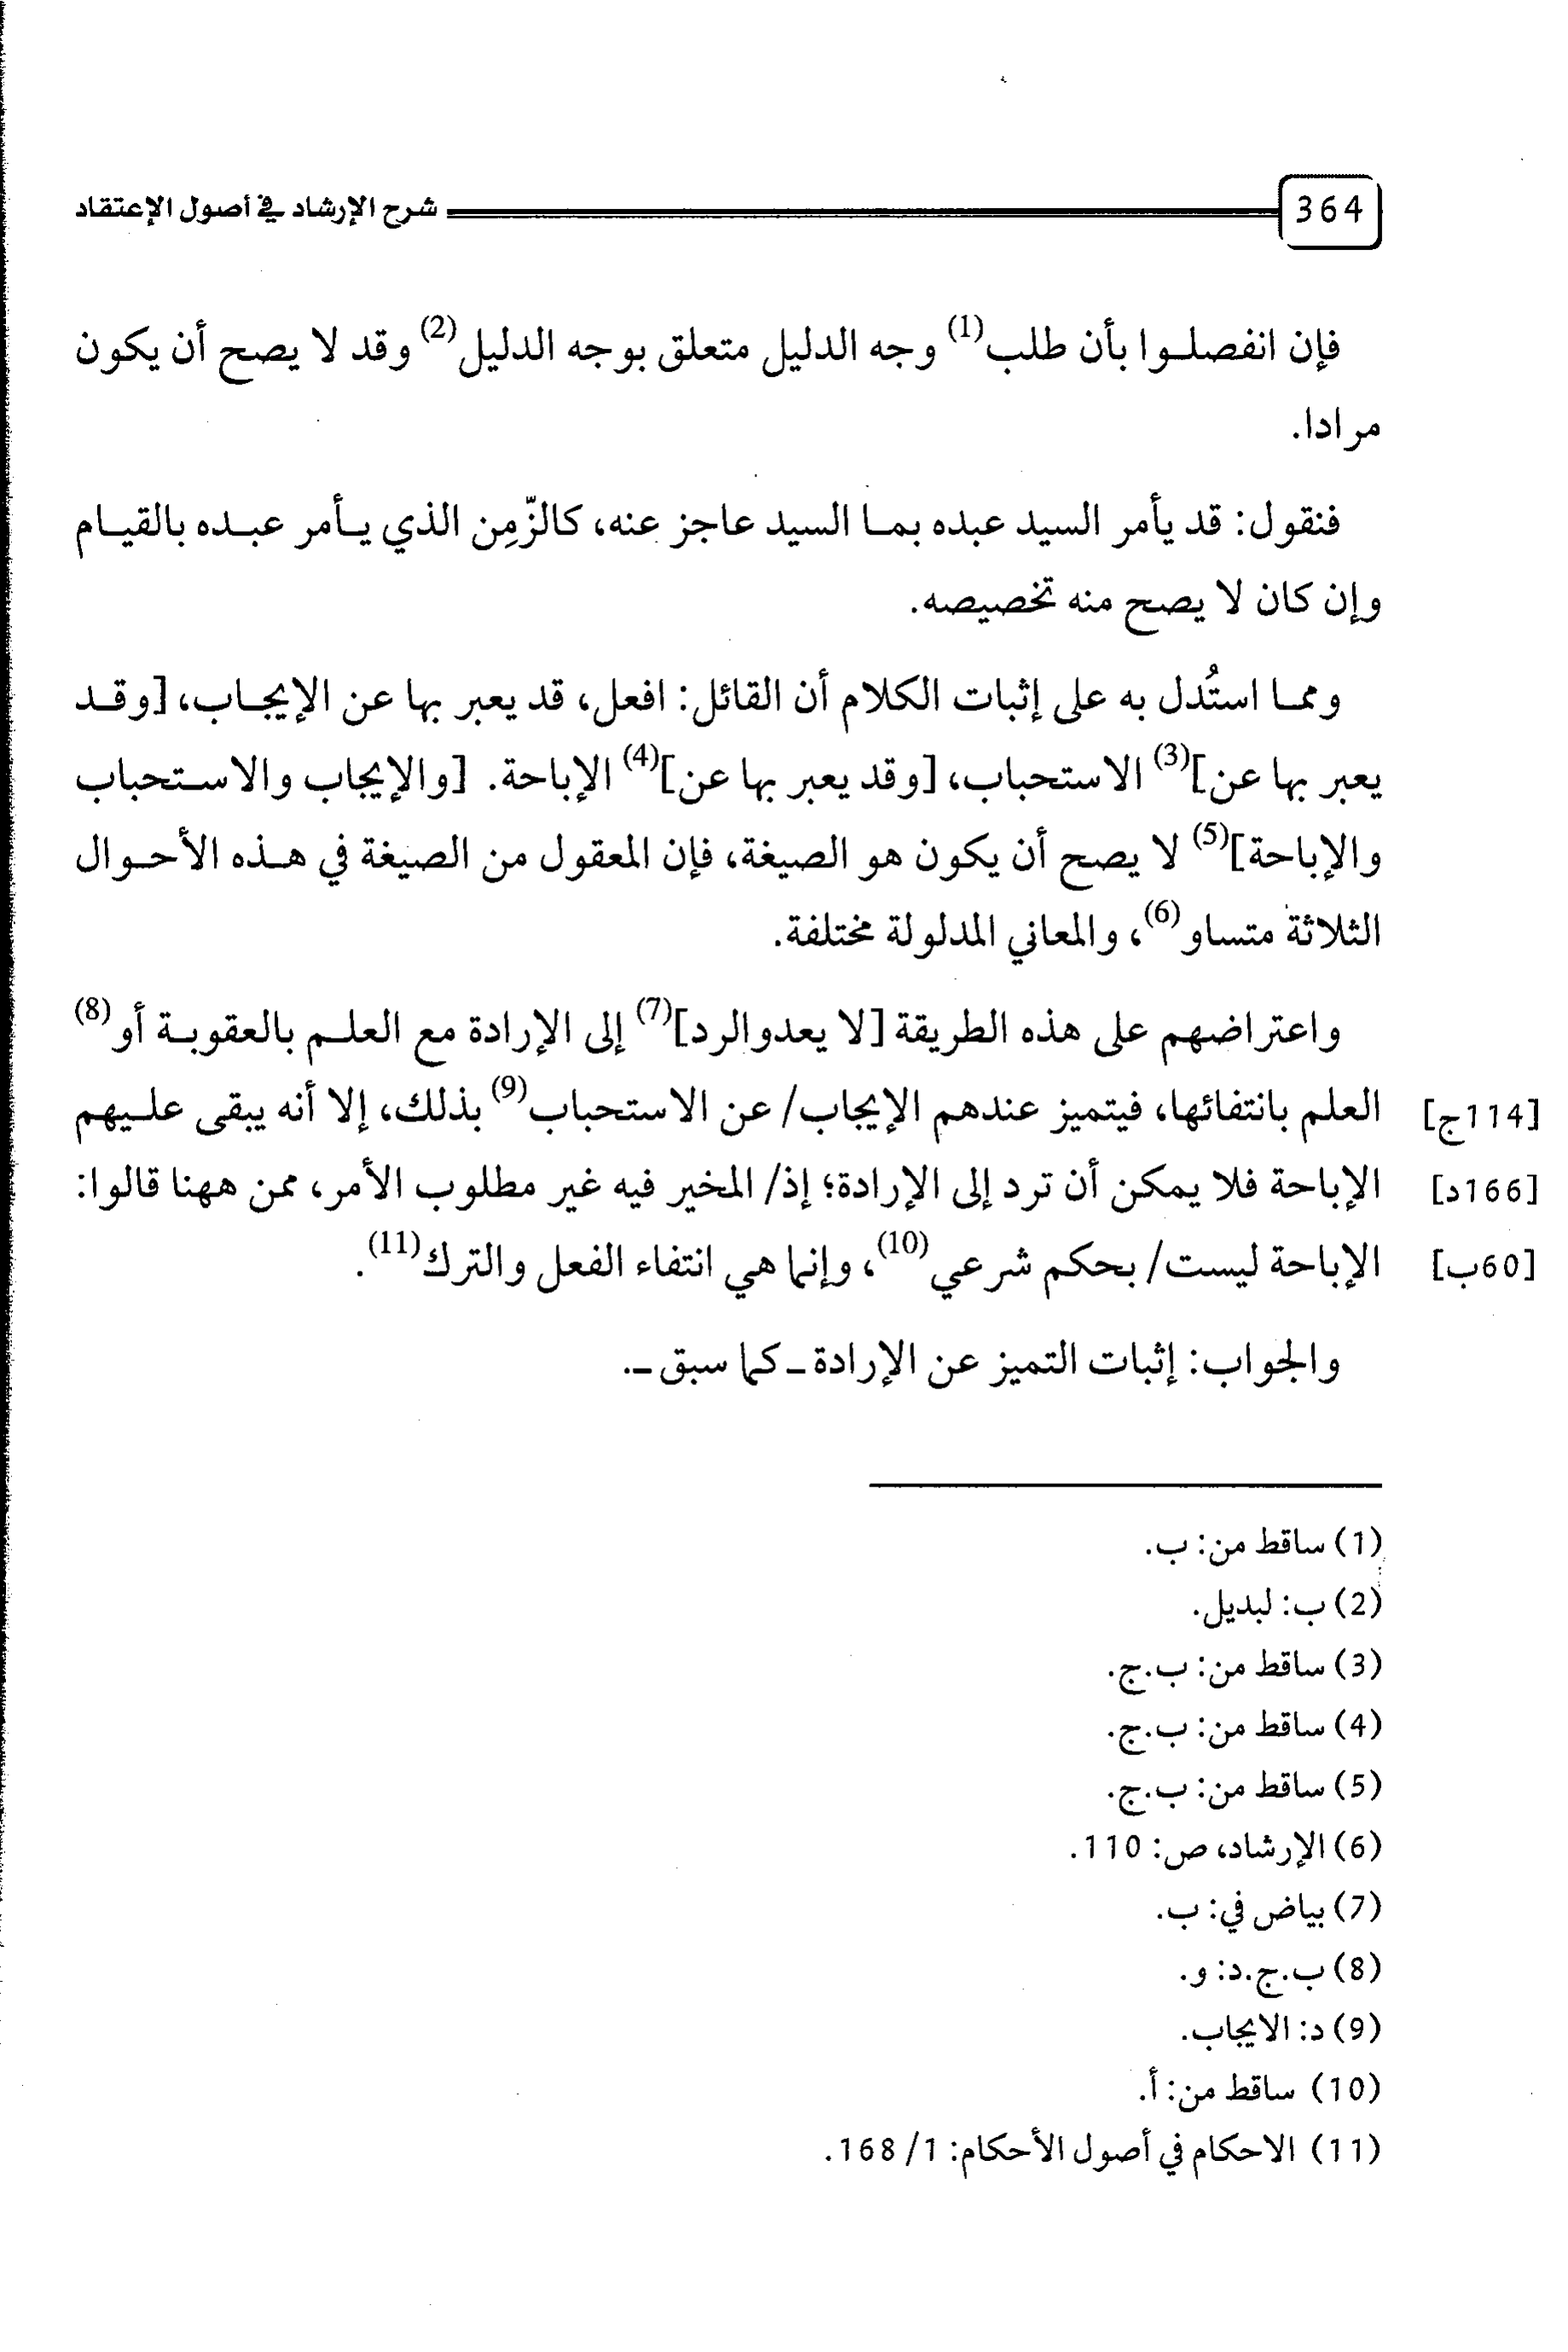 364 شرح الإرشاد في أصول الإعتقاد
فإن انفصلوا بأن طلب(1) وجه الدليل متعلق بوجه الدليل(2) وقد لا يصح أن يكون
مرادا.
فنقول: قد يأمر السيد عبده بما السيد عاجز عنه، كالزّمِن الذي يأمر عبده بالقيام
وإن كان لا يصح منه تخصيصه.
ومما استُدل به على إثبات الكلام أن القائل: افعل، قد يعبر بها عن الإيجاب، [وقد
يعبر بها عن](3) الاستحباب، [وقد يعبر بها عن](4) الإباحة. [والإيجاب والاستحباب
والإباحة](5) لا يصح أن يكون هو الصيغة، فإن المعقول من الصيغة في هذه الأحوال
الثلاثة متساو(6)، والمعاني المدلولة مختلفة.
واعتراضهم على هذه الطريقة [لا يعدوالرد](7) إلى الإرادة مع العلم بالعقوبة أو(8)
[114ج] العلم بانتفائها، فيتميز عندهم الإيجاب/ عن الاستحباب(9) بذلك، إلا أنه يبقى عليهم
[166د] الإباحة فلا يمكن أن ترد إلى الإرادة؛ إذ/ المخير فيه غير مطلوب الأمر، ممن ههنا قالوا:
[60ب] الإباحة ليست/ بحكم شرعي(10)، وإنما هي انتفاء الفعل والترك(11).
والجواب: إثبات التميز عن الإرادة ـ كما سبق ـ.
(1) ساقط من: ب.
(2) ب: لبديل.
(3) ساقط من: ب.ج.
(4) ساقط من: ب.ج.
(5) ساقط من: ب.ج.
(6) الإرشاد، ص: 110.
(7) بياض في: ب.
(8) ب.ج.د: و.
(9) د: الايجاب.
(10) ساقط من: أ.
(11) الاحكام في أصول الأحكام: 1/ 168.